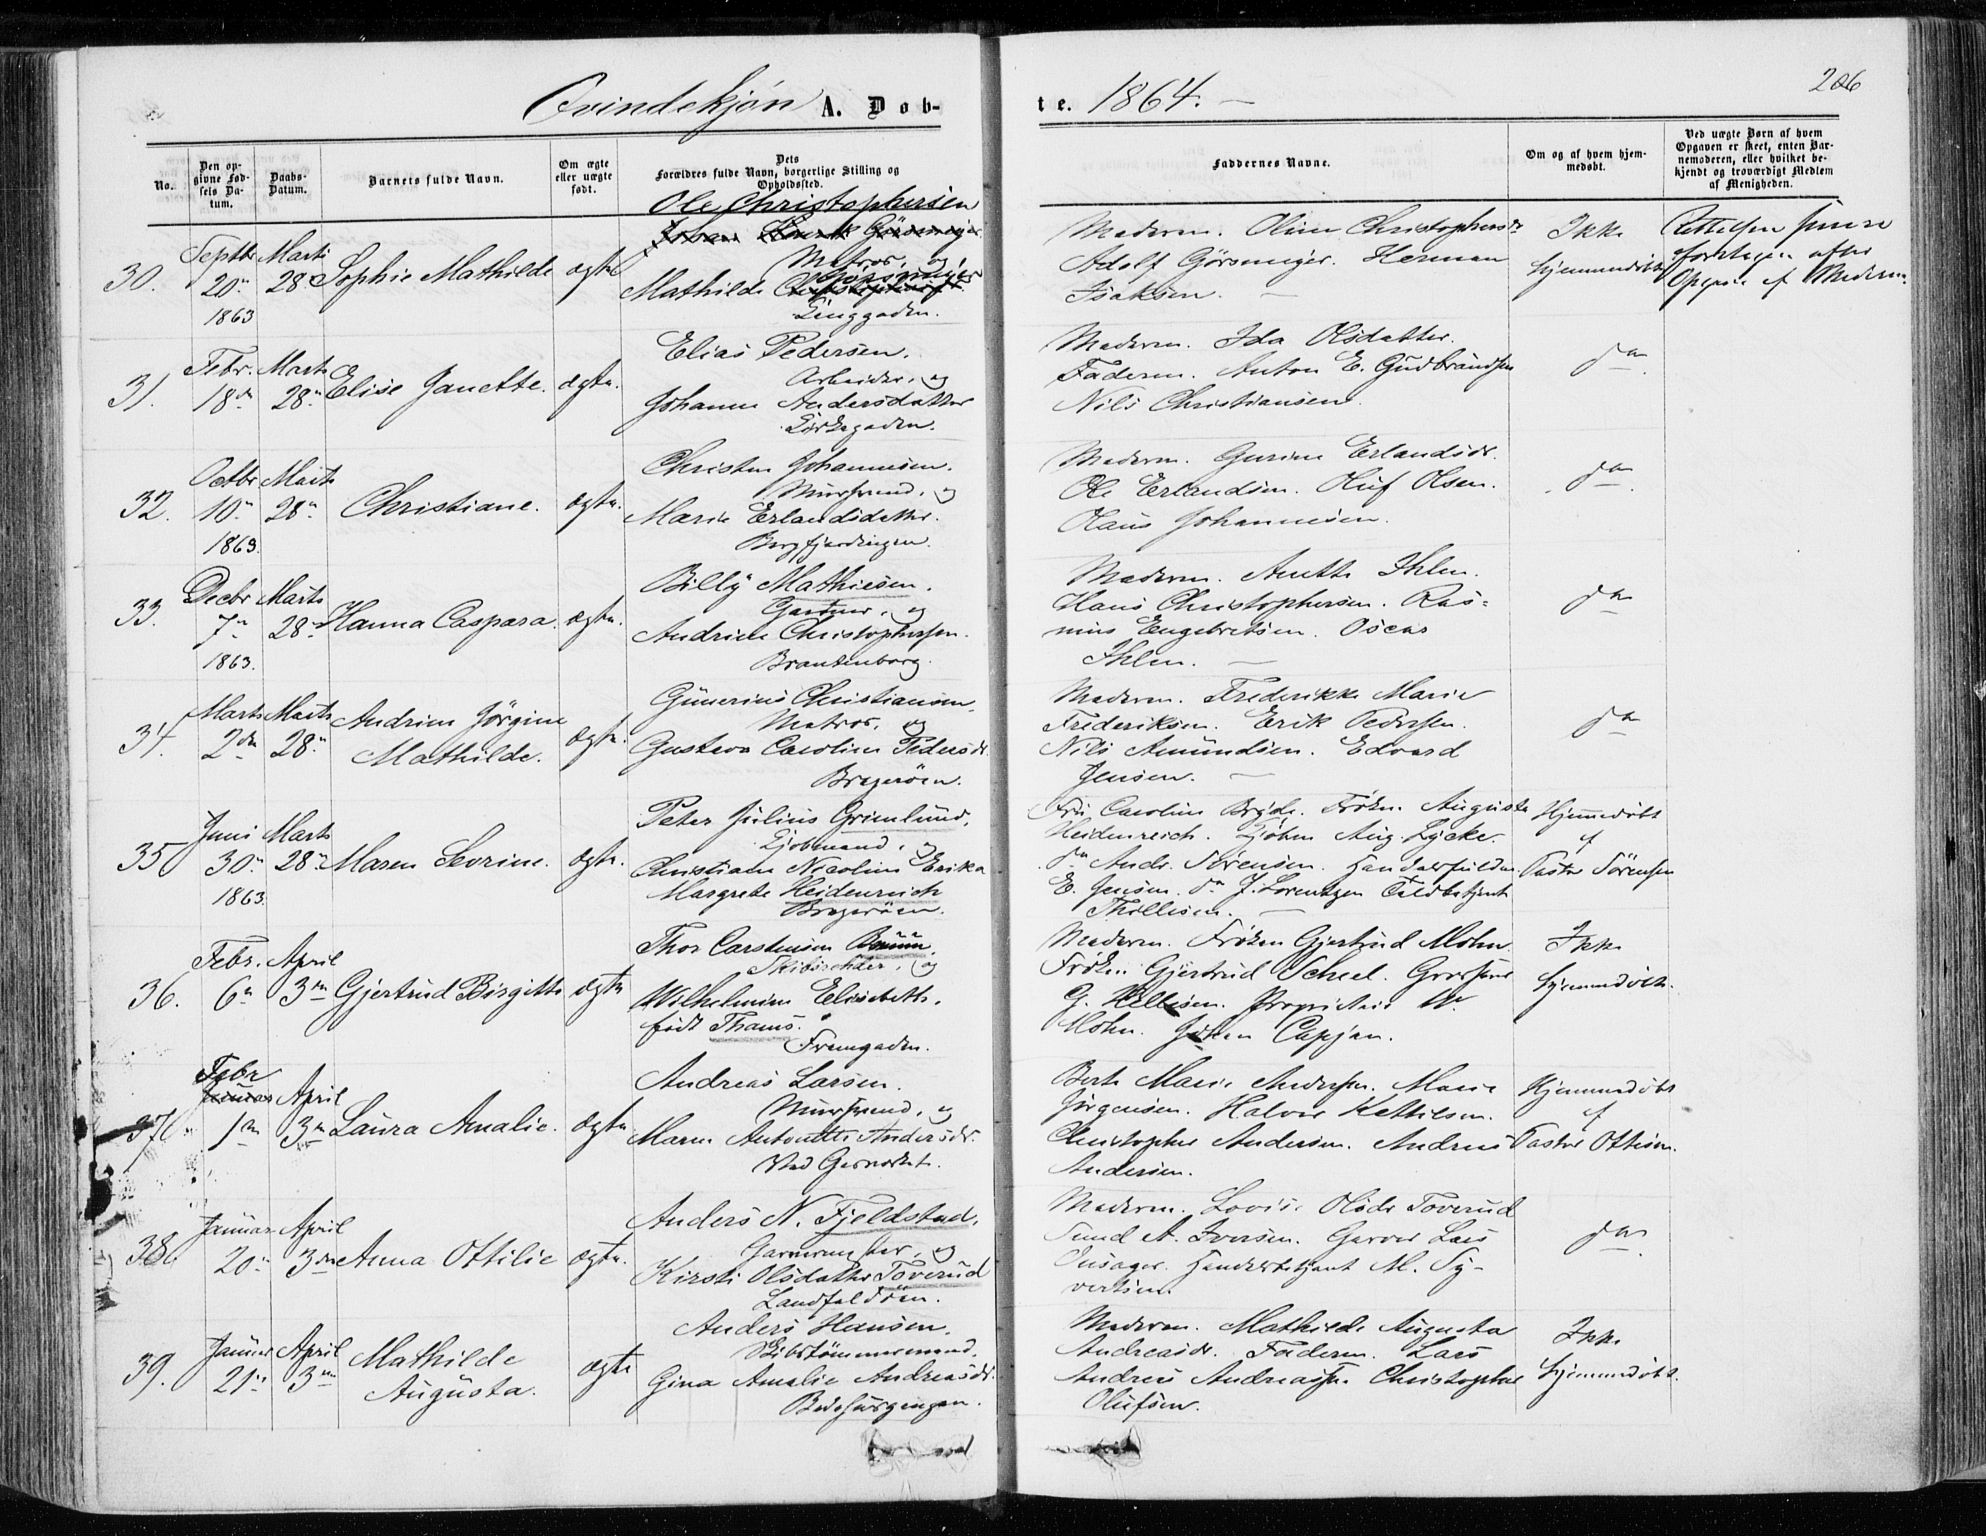 Qvindekjøn A. Døb-
te. 1864.
206
No.
Den op-
givne Fød-
sels Da-
tum.
Daabs-
Datum.
Barnets fulde Navn.
Om ægte
eller uægte
født.
Dets
Forældres fulde Navn, borgerlige Stilling og
Opholdssted.
Faddernes Navne.
Om og af hvem hjem-
medøbt.
Ved uægte Børn af hvem
Opgaven er skeet, enten Bar-
nemoderen, eller hvilket be-
kjendt og troværdigt Medlem
af Menigheden.
30.
Septbr
20n
1863
Marts
28n
Sophie Mathilde
ægte
Ole Christophersen
Matros, og
Mathilde Görsmeyer
Moderen. Oline Christophersdr
Adolf Görsmeyer. Herman
Isaksen. —
Ikke
hjemmedøbt
31.
Febr.
18de
Marts
28n
Elise Janette.
ægte.
Elias Pedersen.
Arbeider, og
Johanne Andersdatter
Moderen. Ida Olsdatter.
Faderen. Anton E. Gudbrandsen
Nils Christiansen.
do
32.
Octbr
10n
1863.
Marts
28n
Christiane.
ægte.
Christen Johannesen.
Murssvend, og
Marie Erlandsdatter.
Bergfjerdingen.
Moderen. Gurine Erlandsdr.
Ole Erlandsen. Oluf Olsen.
Hans Johannesen.
do
33.
Decbr
7n
1863.
Marts
28n
Hanna Caspara.
ægte.
Billy Mathiesen.
Gartner, og
Andrine Christophersen.
Brantenborg.
Moderen. Anette Ihlen.
Hans Christophersen. Ras=
mus Engebretsen. Oscar
Ihlen. —
do
34.
Marts
2den
Marts
28n
Andrine Jørgine
Mathilde.
ægte.
Gunerius Christiansen.
Matros, og
Gustava Caroline Pedersdr.
Bragerøen.
Moderen. Frederikke Marie
Frederiksen. Erik Pedersen.
Nils Amundsen. Edvard
Jensen. —
do
35
Juni
30n
1863.
Marts
28n
Maren Sevrine.
ægte.
Peter Julius Grimlund,
Kjøbmand, og
Christiane Nicoline Erika
Margrete Heidenreich
Bragerøen.
Fru Caroline Bryde. Frøken Augusta
Heidenreich. Kjøbm Aug. Lycke.
do Andr. Sörensen. Handelsfuldm.
E. Jensen. do J. Lorentzen Toldbetjent
Thollesen. —
Hjemmedøbt
af
Pastor Sörensen
36.
Febr.
6n
April
3die
Gjertrud Birgitte
ægte
Thor Carstensen Bruun,
Skibsrheder, og
Wilhelmine Elisabeth,
født Thams.
Fremgaden.
Moderen. Frøken Gjertrud Mohn.
Frøken Gjertrud Scheel. Grosserer
G. Kellesen. Proprietair W.
Mohn. Johan Capjen.
Ikke
hjemmedøbt.
37.
Febr
1n
April
3n
Laura Amalie.
ægte
Andreas Larsen.
Murssvend, og
Maren Antonette Andersdr.
Berte Marie Andersen. Marie
Jørgensen. Halvor Kettilsen.
Christopher Andersen. Andreas
Andersen.
Hjemmedøbt
af
Pastor Ottesen.
38.
Januar
20n
April
3die
Anna Ottilie
ægte.
Anders N. Fjeldstad,
Garvermester, og
Kirsti Olsdatter Toverud
Landfaldøen.
Moderen. Lovise Olsdr Toverud
Svend A. Iversen. Garver Lars
Onsager. Handelsbetjent M. Sy-
vertsen.
do
39.
Januar
21n
April
3die
Mathilde
Augusta.
ægte
Anders Hansen.
Skibstømmermand.
Gina Amalie Andreasdr.
Moderen. Mathilde Augusta
Andreasdr. Faderen. Lars
Andreas Andreassen. Christopher
Olufsen.
Ikke
hjemmedøbt.